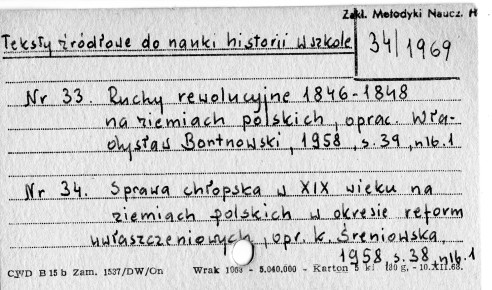 Zakł. Metodyki Naucz. H
Teksty źródłowe do nauki historii w szkole
34/1969
Nr 33. Ruchy rewolucyjne 1846-1848
na ziemiach polskich, oprac. Wła-
dysław Bortnowski, 1958, s. 39, nlb. 1
Nr 34. Sprawa chłopska w XIX wieku na
ziemiach polskich w okresie reform
uwłaszczeniowych, opr. K. Śreniowska,
1958, s. 38, nlb. 1
CWD B 15 b Zam. 1537/DW/On Wrak 1068 - 5.040.000 - Karton 5 kl 180 g. - 10.XII.68.